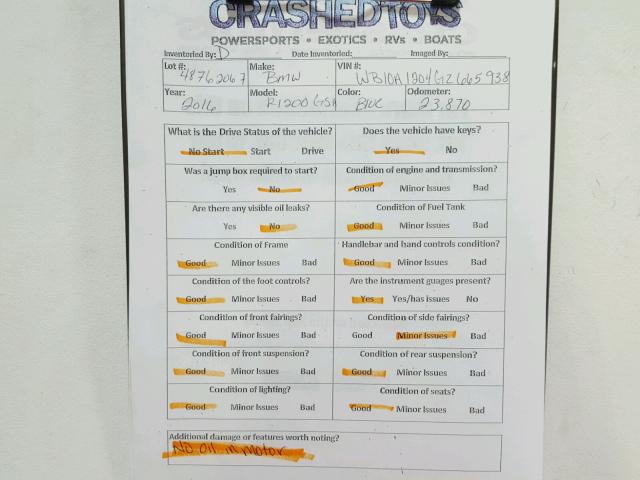 CRASHEDTOYS
POWERSPORTS • EXOTICS • RVs • BOATS
Inventoried By: D Date Inventoried: Imaged By:
Lot #: 48762067 Make: BMW VIN #: WB10A1204GZ665938
Year: 2016 Model: R1200 GSA Color: Blue Odometer: 23,870
What is the Drive Status of the vehicle? Does the vehicle have keys?
No Start Start Drive Yes No
Was a jump box required to start? Condition of engine and transmission?
Yes No Good Minor Issues Bad
Are there any visible oil leaks? Condition of Fuel Tank
Yes No Good Minor Issues Bad
Condition of Frame Handlebar and hand controls condition?
Good Minor Issues Bad Good Minor Issues Bad
Condition of the foot controls? Are the instrument guages present?
Good Minor Issues Bad Yes Yes/has issues No
Condition of front fairings? Condition of side fairings?
Good Minor Issues Bad Good Minor Issues Bad
Condition of front suspension? Condition of rear suspension?
Good Minor Issues Bad Good Minor Issues Bad
Condition of lighting? Condition of seats?
Good Minor Issues Bad Good Minor Issues Bad
Additional damage or features worth noting?
No oil in motor